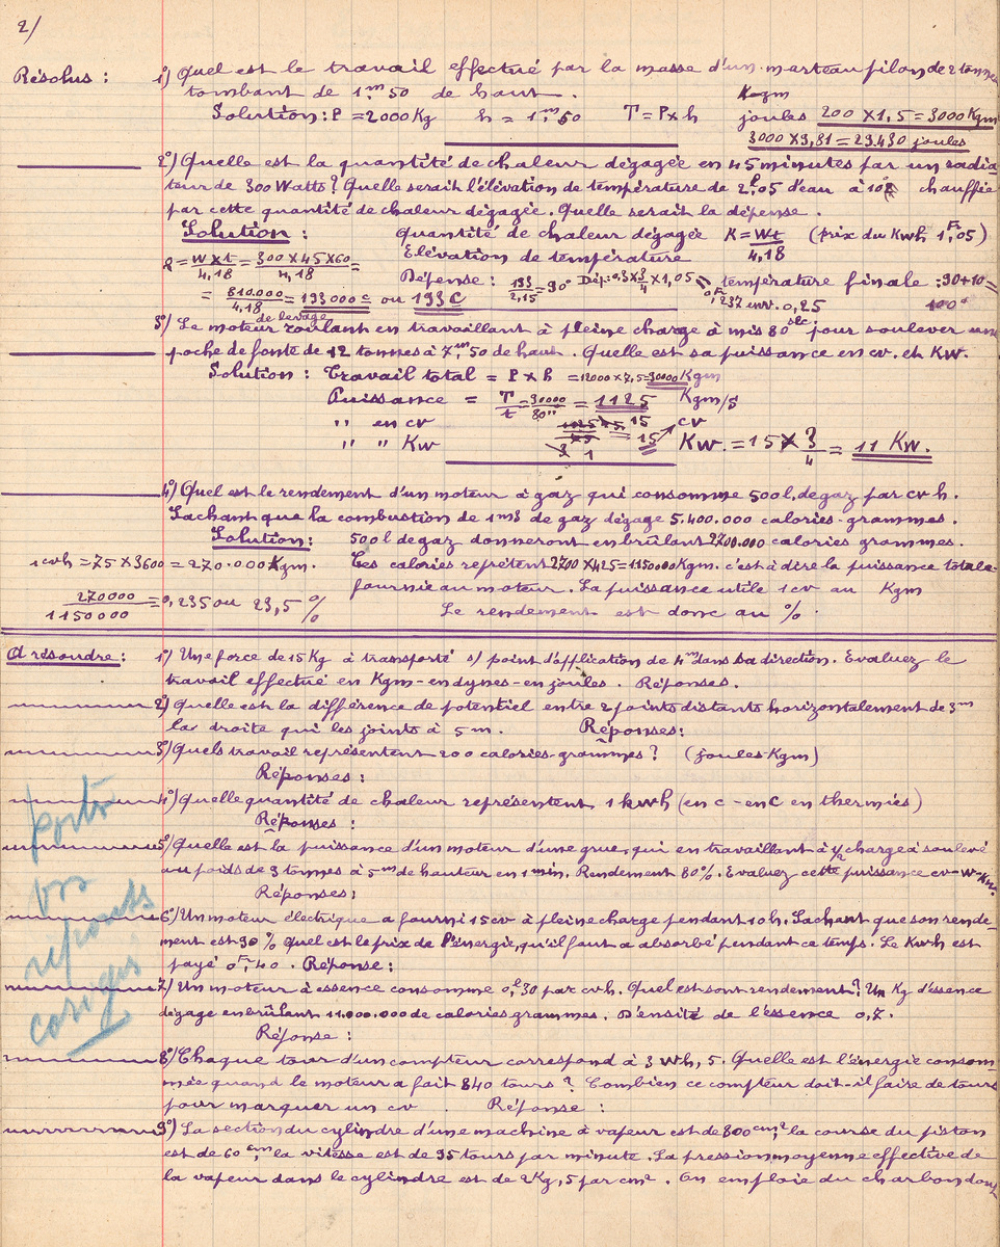 2/
Résolus : 1°) Quel est le travail effectué par la masse d'un marteau pilon de 2 tonnes
tombant de 1,m50 de haut. Kgm
Solution : P = 2000 Kg h = 1,m50 T = P x h joules 200 x 1,5 = 3000 Kgm
3000 x 9,81 = 29.430 joules
2°) Quelle est la quantité de chaleur dégagée en 45 minutes par un radia-
teur de 300 Watts ? Quelle serait l'élévation de température de 2,l05 d'eau à 10° chauffée
par cette quantité de chaleur dégagée. Quelle serait la dépense.
Solution : Quantité de chaleur dégagée K = Wt/4,18 (prix du Kwh 1,Fr05)
Q = W x t/4,18 = 300 x 45 x 60/4,18 = Elévation de température
Dépense : 193/2,15 = 90° Dép: 0,3 x 3/4 x 1,05 = température finale : 90+10 =
= 810.000/4,18 = 193000 c ou 193 C 0,Fr237 env. 0,25 100°
de levage
3°) Le moteur roulant en travaillant à pleine charge à mis 80 sec. pour soulever une
poche de fonte de 12 tonnes à 7,m50 de haut. Quelle est sa puissance en cv. et KW.
Solution : Travail total = P x h = 12000 x 7,5 = 90000 Kgm
Puissance = T/t = 90000/80" = 1125 Kgm/s
" en cv 1125/75 = 15 cv
" " Kw 15 Kw. = 15 x 3/4 = 11 Kw.
4°) Quel est le rendement d'un moteur à gaz qui consomme 500 l. de gaz par cv h.
Sachant que la combustion de 1m3 de gaz dégage 5.400.000 calories-grammes.
Solution : 500 l de gaz donneront en brûlant 2700.000 calories grammes.
1 cvh = 75 x 3600 = 270.000 Kgm. Ces calories reprétent 2700 x 425 = 1150000 Kgm. c'est à dire la puissance totale
fournie au moteur. La puissance utile 1 cv au Kgm
270000/1150000 = 0,235 ou 23,5 % Le rendement est donc au %.
A résoudre : 1°) Une force de 15 Kg à transporté s/ point d'application de 4m dans sa direction. Evaluez le
travail effectué en Kgm - en dynes - en joules. Réponses.
2°) Quelle est la différence de potentiel entre 2 points distants horizontalement de 3m
la droite qui les joints à 5 m. Réponses :
3°) Quels travail représentent 200 calories-grammes ? (joules-Kgm)
Réponses :
4°) Quelle quantité de chaleur représentent 1 kwh (en c - en C en thermies)
Réponses :
5°) Quelle est la puissance d'un moteur d'une grue, qui en travaillant à 1/2 charge à soulevé
un poids de 3 tonnes à 5m de hauteur en 1 min. Rendement 80%. Evaluez cette puissance cv-W-Kw.
Réponses :
6°) Un moteur électrique a fourni 15 cv à pleine charge pendant 10h. Sachant que son rende-
ment est 90 % Quel est le prix de l'énergie, qu'il faut a absorbé pendant ce temps. Le Kwh est
payé 0,Fr40. Réponse :
7°) Un moteur à essence consomme 0,l30 par cvh. Quel est sont rendement ? Un Kg d'essence
dégage en brûlant 11.000.000 de calories grammes. Densité de l'éssence 0,7.
Réponse :
8°) Chaque tour d'un compteur correspond à 3 Wh, 5. Quelle est l'énergie consom-
mée quand le moteur a fait 840 tours ? Combien ce compteur doit-il faire de tours
pour marquer un cv. Réponse :
9°) La section du cylindre d'une machine à vapeur est de 800 cm², la course du piston
est de 60 cm, la vitesse est de 95 tours par minute. La pression moyenne effective de
la vapeur dans le cylindre est de 2Kg,5 par cm². On emploie du charbon dont
corrigés